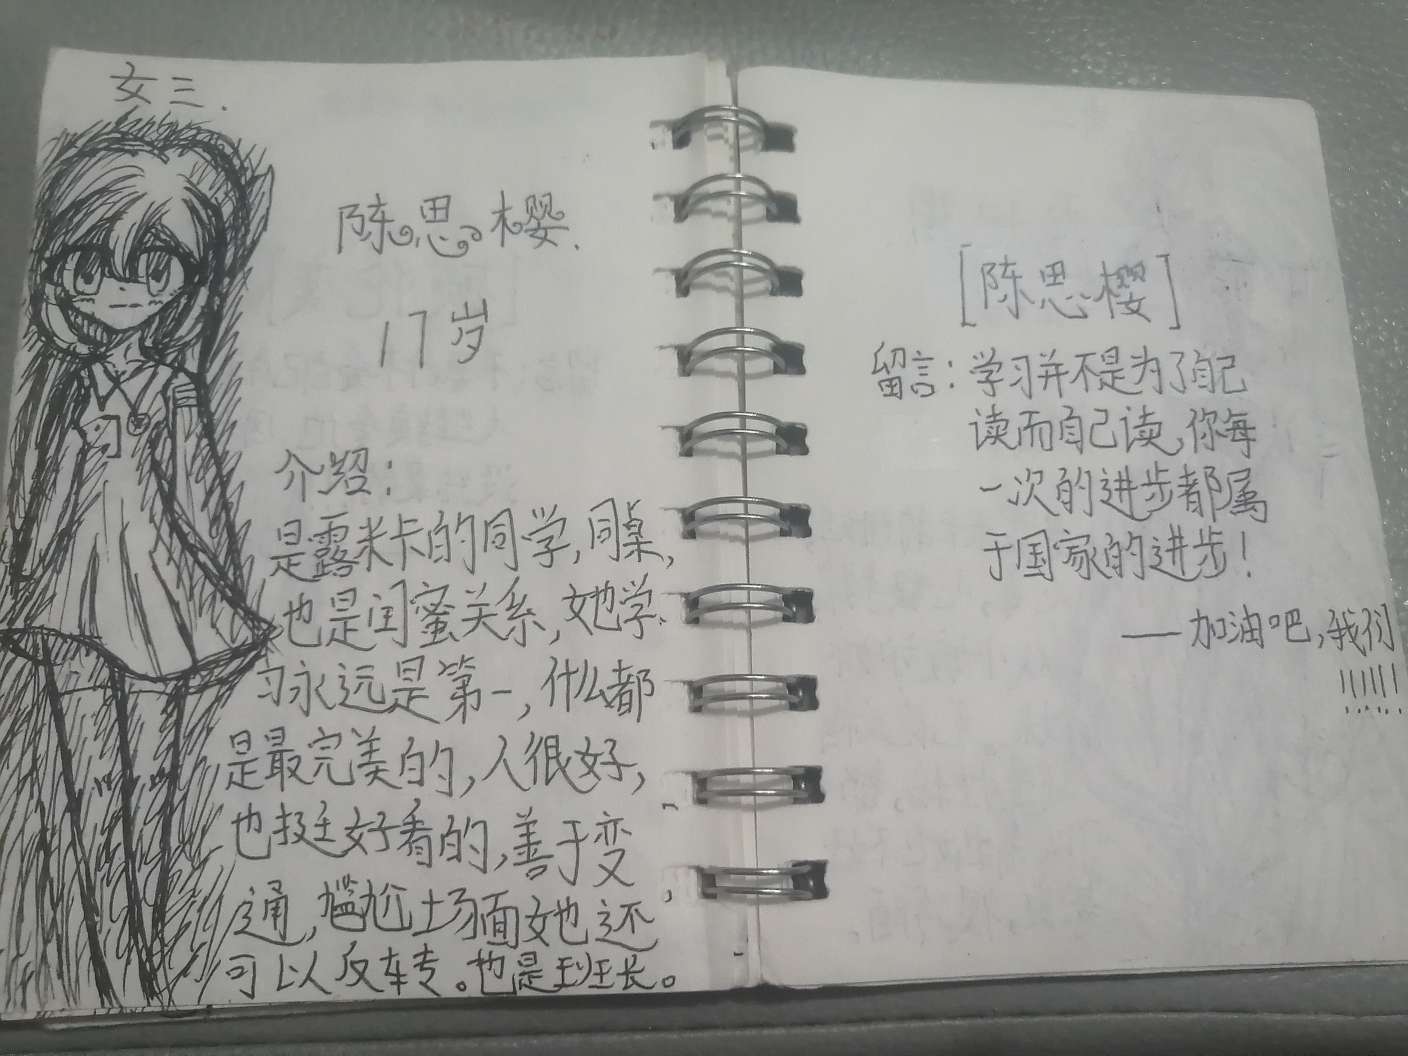 女三.
陈思樱.
17岁
介绍：
是露米卡的同学,同桌,
也是闺蜜关系,她学
习永远是第一,什么都
是最完美的,人很好,
也挺好看的,善于变
通,尴尬场面她还
可以反转。也是班长。
[陈思樱]
留言：学习并不是为了自己
读而自己读,你每
一次的进步都属
于国家的进步!
——加油吧,我们
!!!!!!